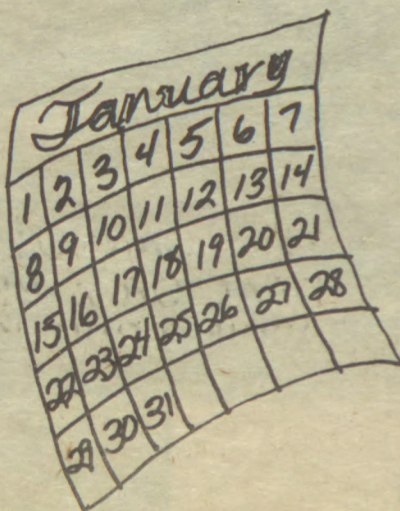 January
1 2 3 4 5 6 7
8 9 10 11 12 13 14
15 16 17 18 19 20 21
22 23 24 25 26 27 28
29 30 31